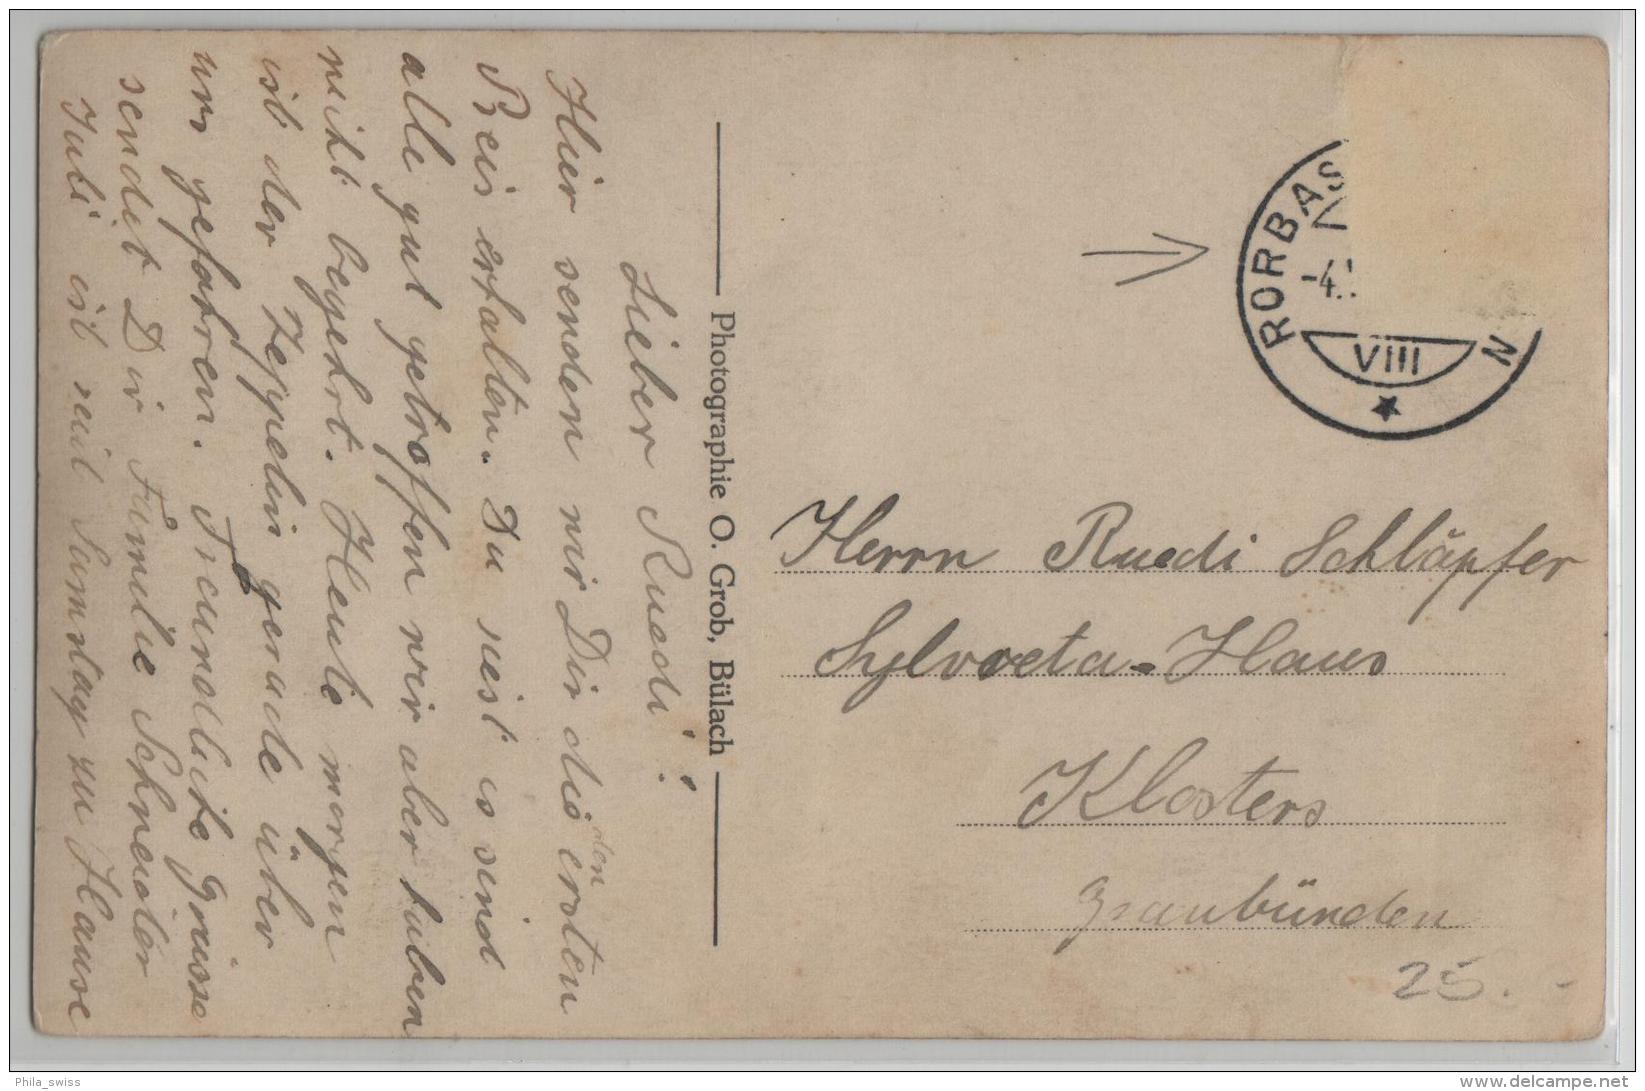 Lieber Ruedi!
den
Hier senden wir Dir die ersten
Preis erhalten. Du siest es sind
alle gut getroffen wir aber haben
nicht begehrt. Heute morgen
ist der Zeppelin gerade über
uns gefahren. Freundliche Grüsse
sendet Dir Familie Schneider
Juli ist seit Samstag zu Hause
Photographie O. Grob, Bülach
RORBAS N
-4.
VIII
Herrn Ruedi Schläpfer
Sylvreta-Haus
Klosters
Graubünden
25.-
Phila_swiss
www.delcampe.net